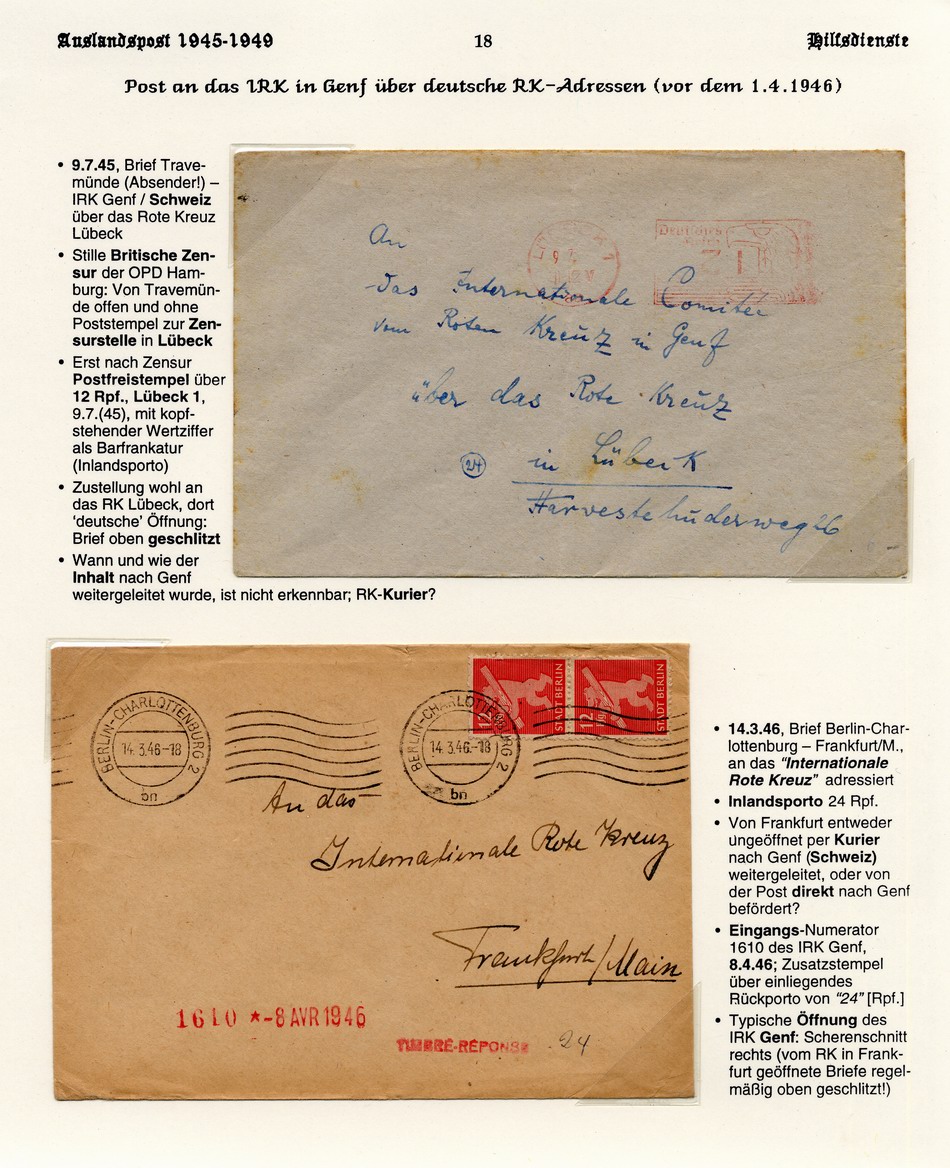 Auslandspost 1945-1949
18
Hilfsdienste
Post an das IRK in Genf über deutsche RK-Adressen (vor dem 1.4.1946)
• 9.7.45, Brief Trave-
münde (Absender!) –
IRK Genf / Schweiz
über das Rote Kreuz
Lübeck
• Stille Britische Zen-
sur der OPD Ham-
burg: Von Travemün-
de offen und ohne
Poststempel zur Zen-
surstelle in Lübeck
• Erst nach Zensur
Postfreistempel über
12 Rpf., Lübeck 1,
9.7.(45), mit kopf-
stehender Wertziffer
als Barfrankatur
(Inlandsporto)
• Zustellung wohl an
das RK Lübeck, dort
'deutsche' Öffnung:
Brief oben geschlitzt
• Wann und wie der
Inhalt nach Genf
weitergeleitet wurde, ist nicht erkennbar; RK-Kurier?
Deutsches
Reich
An
das Internationale Comitee
vom Roten Kreuz in Genf
über das Rote Kreuz
24 in Lübeck
Harvestehuderweg 26
12
STADT BERLIN
12
STADT BERLIN
BERLIN-CHARLOTTENBURG 2
14.3.46-18
bn
BERLIN-CHARLOTTENBURG 2
14.3.46.-18
bn
An das
Internationale Rote Kreuz
Frankfurt/Main
1610 *-8 AVR 1946
TIMBRE-RÉPONSE 24
• 14.3.46, Brief Berlin-Char-
lottenburg – Frankfurt/M.,
an das "Internationale
Rote Kreuz" adressiert
• Inlandsporto 24 Rpf.
• Von Frankfurt entweder
ungeöffnet per Kurier
nach Genf (Schweiz)
weitergeleitet, oder von
der Post direkt nach Genf
befördert?
• Eingangs-Numerator
1610 des IRK Genf,
8.4.46; Zusatzstempel
über einliegendes
Rückporto von "24" [Rpf.]
• Typische Öffnung des
IRK Genf: Scherenschnitt
rechts (vom RK in Frank-
furt geöffnete Briefe regel-
mäßig oben geschlitzt!)